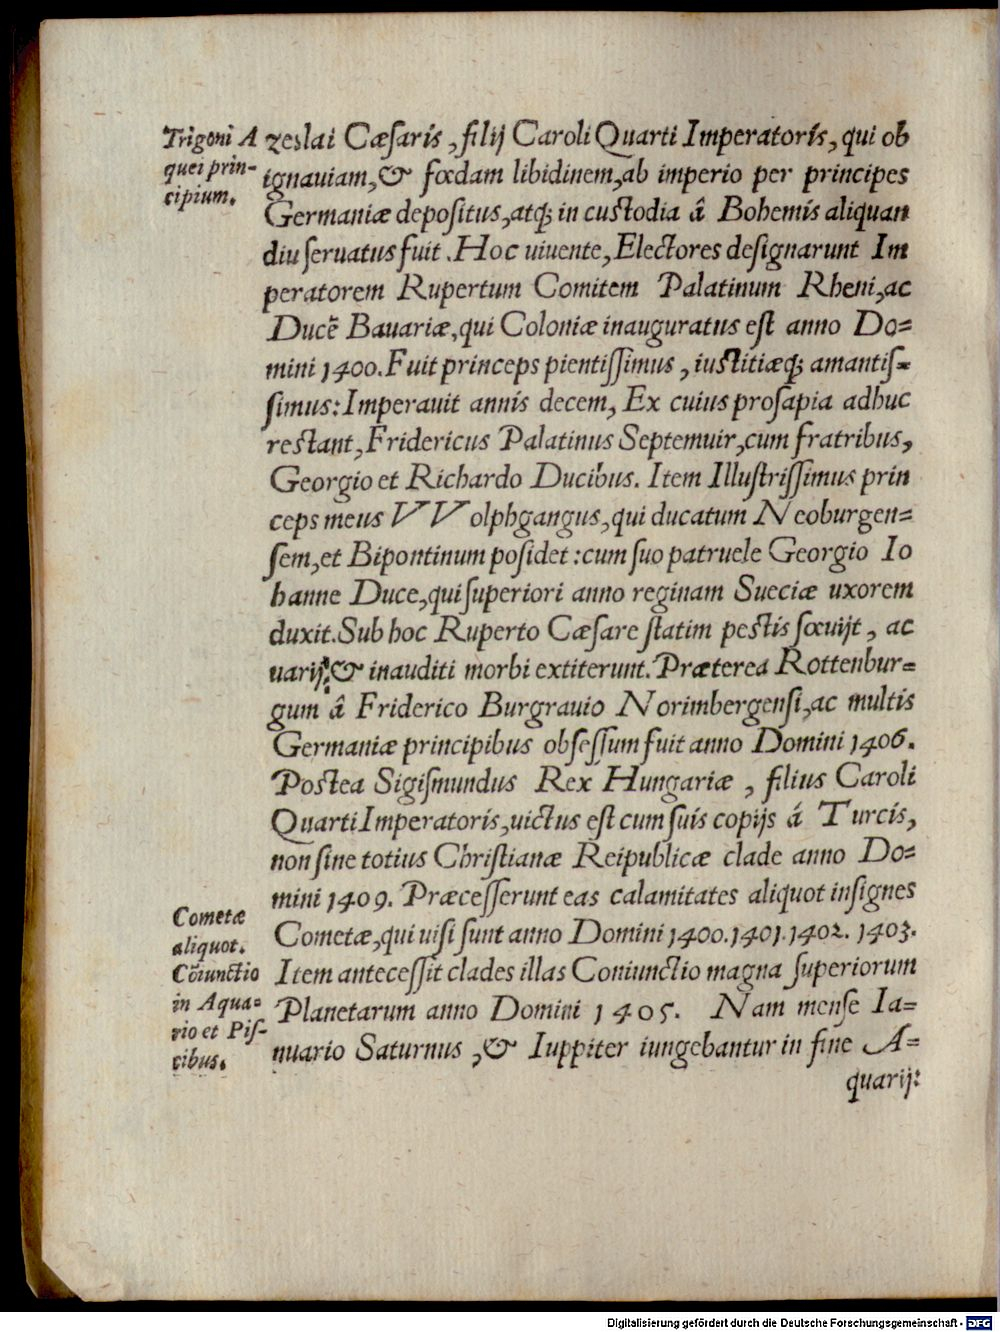 Trigoni A
quei prin-
cipium.
zeslai Cæsaris, filij Caroli Quarti Imperatoris, qui ob
ignauiam, & fœdam libidinem, ab imperio per principes
Germaniæ depositus, atq; in custodia â Bohemis aliquan
diu seruatus fuit. Hoc uiuente, Electores designarunt Im
peratorem Rupertum Comitem Palatinum Rheni, ac
Ducẽ Bauariæ, qui Coloniæ inauguratus est anno Do=
mini 1400. Fuit princeps pientissimus, iustitiæq; amantis=
simus: Imperauit annis decem, Ex cuius prosapia adhuc
restant, Fridericus Palatinus Septemuir, cum fratribus,
Georgio et Richardo Ducibus. Item Illustrissimus prin
ceps meus VVolphgangus, qui ducatum Neoburgen=
sem, et Bipontinum posidet: cum suo patruele Georgio Io
hanne Duce, qui superiori anno reginam Sueciæ uxorem
duxit. Sub hoc Ruperto Cæsare statim pestis sœuijt, ac
uarij, & inauditi morbi extiterunt. Præterea Rottenbur=
gum â Friderico Burgrauio Norimbergensi, ac multis
Germaniæ principibus obsessum fuit anno Domini 1406.
Postea Sigismundus Rex Hungariæ, filius Caroli
Quarti Imperatoris, uictus est cum suis copijs á Turcis,
non sine totius Christianæ Reipublicæ clade anno Do=
mini 1409. Præcesserunt eas calamitates aliquot insignes
Cometæ, qui uisi sunt anno Domini 1400. 1401. 1402. 1403.
Item antecessit clades illas Coniunctio magna superiorum
Planetarum anno Domini 1405. Nam mense Ia=
nuario Saturnus, & Iuppiter iungebantur in fine A=
quarij:
Cometæ
aliquot.
Cõiunctio
in Aqua=
rio et Pis-
cibus.
Digitalisierung gefördert durch die Deutsche Forschungsgemeinschaft - DFG